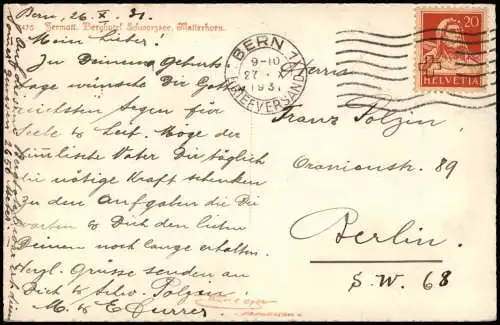 Bern, 26. X. 31.
Zermatt. Berghotel Schwarzsee, Matterhorn.
Mein Lieber!
Zu Deinem Geburts-
tage wünsche Dir Gott
reichsten Segen für
Seele & Leib. Möge der
himmlische Vater Dir täglich
die nötige Kraft schenken
zu den Aufgaben die Dir
warten & Dich den lieben
Deinen noch lange erhalten.
Herzl. Grüsse senden an
Dich & Schw. Polzin.
M. & E. Furrer
BERN 1
9-10
27. X.
1931
BRIEFVERSAND
20
HELVETIA
Herrn
Franz Polzin,
Oranienstr. 89
Berlin.
S.W. 68